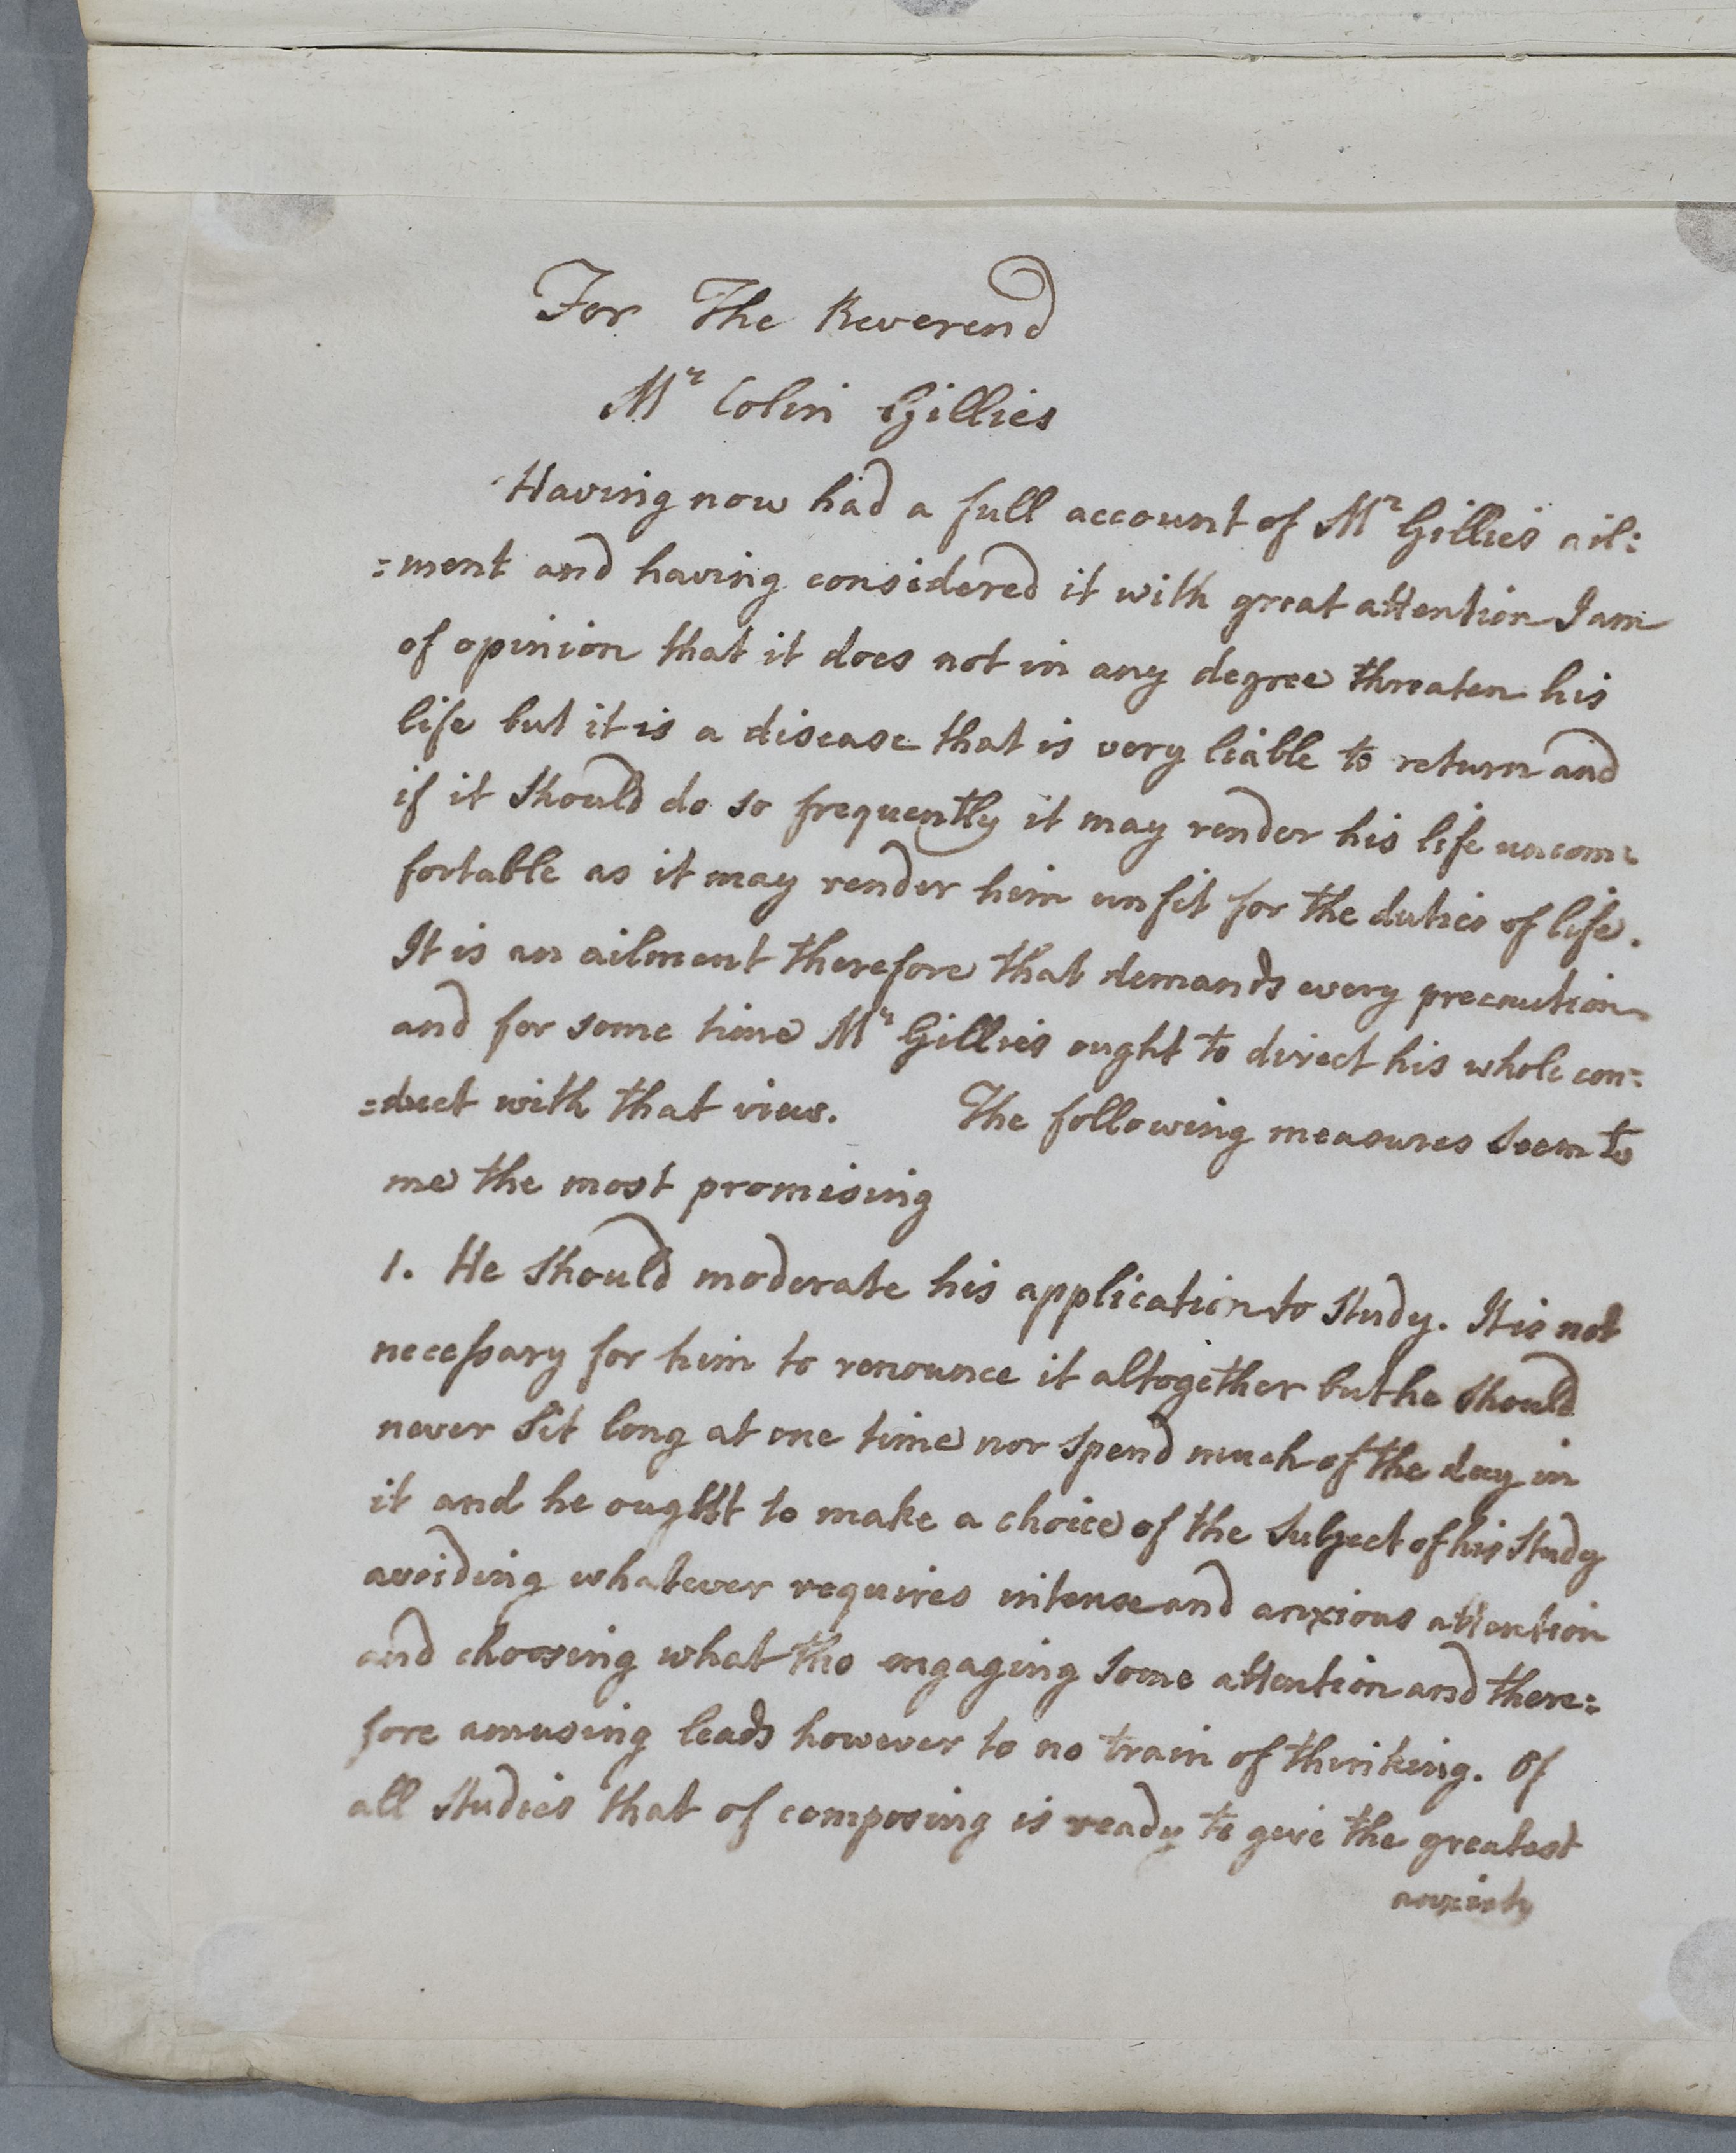 For The Reverend
Mr Colin Gillies
Having now had a full account of Mr Gillies ail:
=ment and having considered it with great attention I am
of opinion that it does not in any degree threaten his
life but it is a disease that is very liable to return and
if it should do so frequently it may render his life uncom:
fortable as it may render him unfit for the duties of life.
It is an ailment therefore that demands every precaution
and for some time Mr Gillies ought to direct his whole con=
=duct with that view. The following measures seem to
me the most promising
1. He should moderate his application to study. It is not
necessary for him to renounce it altogether but he should
never sit long at one time nor spend much of the day in
it and he ought to make a choice of the subject of his study
avoiding whatever requires intense and anxious attention
and choosing what tho engaging some attention and there=
fore amusing leads however to no train of thinking. Of
all studies that of composing is ready to give the greatest
anxiety